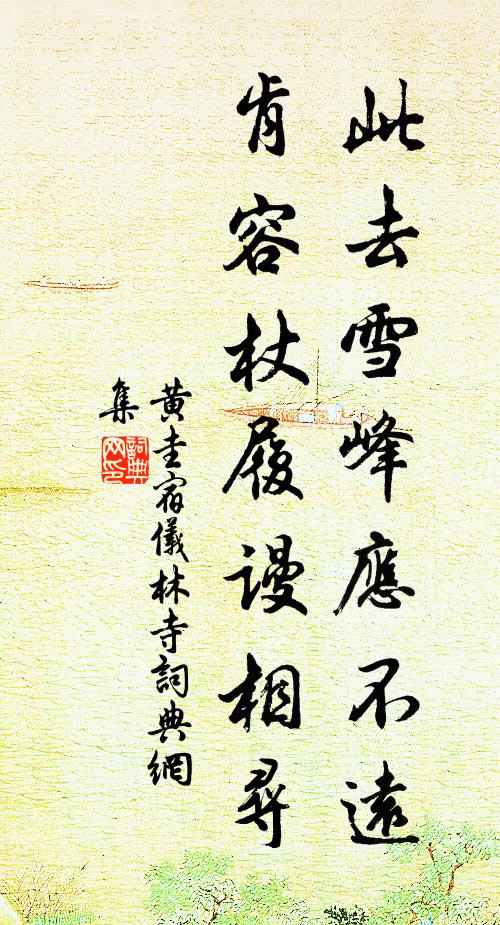 此去雪峰應不遠
肯容杖履謾相尋
黃圭宿儀林寺詞典網
集
詞典网印